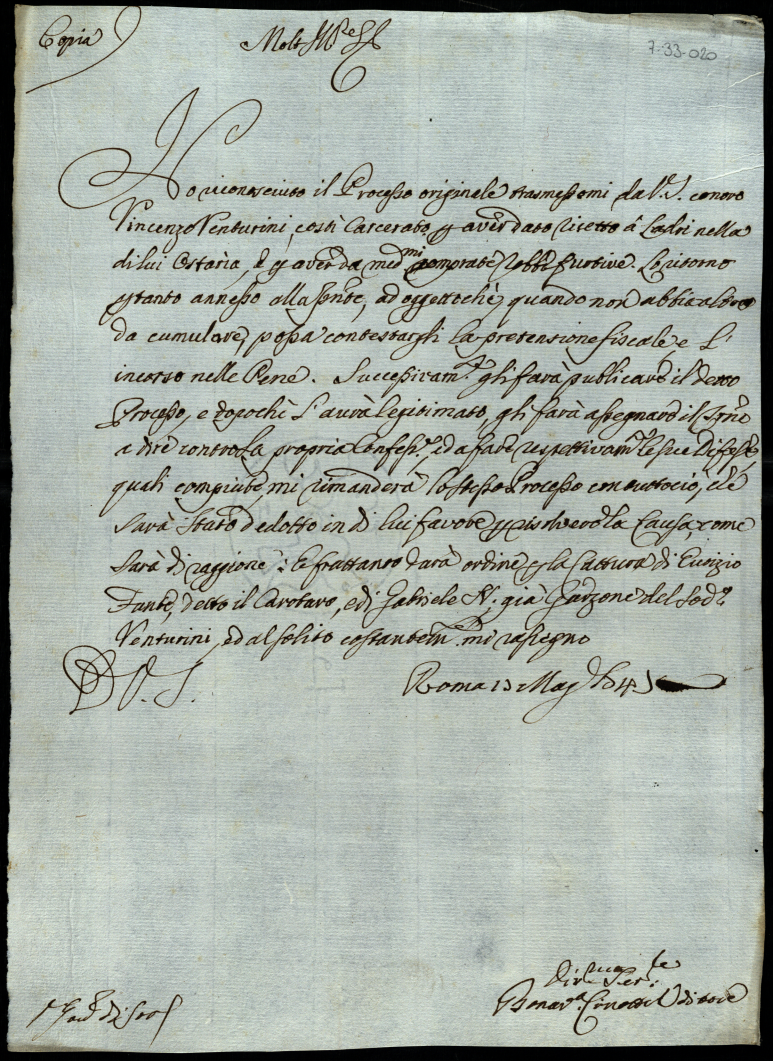 Copia
Molt Ill.re Sig.re
7-33-020
Ho riconosciuto il Processo originale trasmessomi da V.S. contro
Vincenzo Venturini, costì Carcerato, p aver dato ricetto à Ladri nella
di lui Ostaria, e p aver da med.mi comprate robbe furtive. Lo ritorno
ptanto annesso alla pnte, ad oggettochè, quando non abbia altro
da cumulare, possa contestargli la pretensione fiscale, e l'
incorso nelle Pene. Successivam.te gli farà publicare il detto
Processo, e dopochè l'avrà legitimato, gli farà assegnare il
a dire contro la propria Confess.e, ed a fare respettivam.te le sue Difese,
quali compiute, mi rimanderà lo stesso Processo con tuttociò, che
sarà stato dedotto in di lui favore p risolvere la Causa, come
sarà di raggione: E frattanto darà ordine p la cattura di
Fante, detto il Carotaro, e di Gabriele N. già Garzone del Sod.o
Venturini, ed al solito costantem.te mi rassegno
D V. S.
Roma 13 Mag.o
Bonav.a Uditore